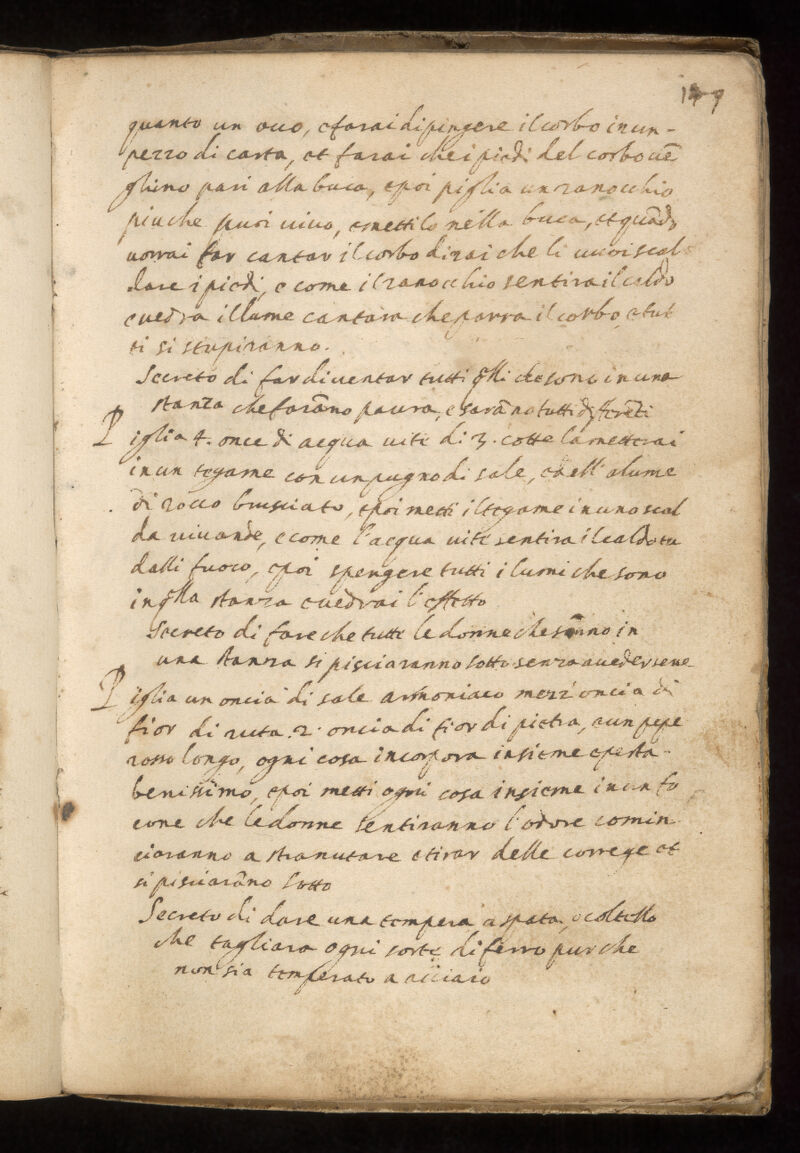 149
quanto un ouo, e farai dipingere il corbo in un-
pezzo di carta, et farai che i piedi del corbo uē
ghino pari alla buca, e poi piglia un ranocchio
piu che puoi uiuo, e mettilo nella buca, et quādo
uorrai far cantar il corbo dirai che li uuoi scal
dare i piedi, e come il ranocchio sentira il caldo
e uedra il lume cantara che parra il corbo, e tut
ti si stupiranno.
Secreto di far diuentar tutti qlli che sono in una
stanza che farāno paura, e sarāno tutti differēti
Piglia 4. once di acqua uite di 3. cotte la metterai
in un tegame con un pugno di sale, e dell'alume
di rocco brusciato, e poi metti il tegame in uno scal
da uiuande, e come l'acqua uite sentira il caldo tu
dalli fuoco, e poi spengere tutti i lumi che sono
in qlla stanza e uedrai l'effetto
Secreto di fare che tutte le donne che sānno in
una stanza si pisciaranno sotto senza auedersene
Piglia un oncia di sale armoniaco mezz'oncia di
fior di ruta .2. oncia di fior di pietra, e un pepe
rosso longo, ogni cosa incorpora insieme e pesta-
benissimo, e poi metti ogni cosa insieme in un fo
cone che le donne sentiranno l'odore comin
ciaranno a stranutare e tirar delle correge et
si pisciarāno sotto
Secreto di dare una tempera a spata, o coltello
che tagliara ogni sorte di ferro pur che
non sia temperato a acciaio